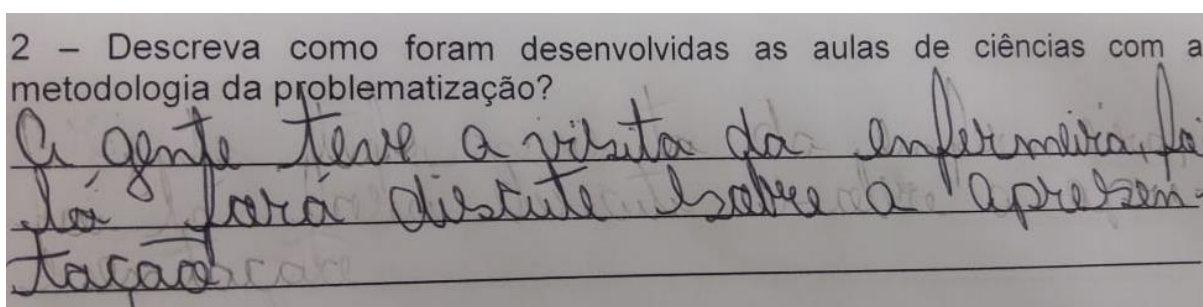 2 – Descreva como foram desenvolvidas as aulas de ciências com a
metodologia da problematização?
A gente teve a visita da enfermeira, foi
lá fará discute sobre a apresen-
tação